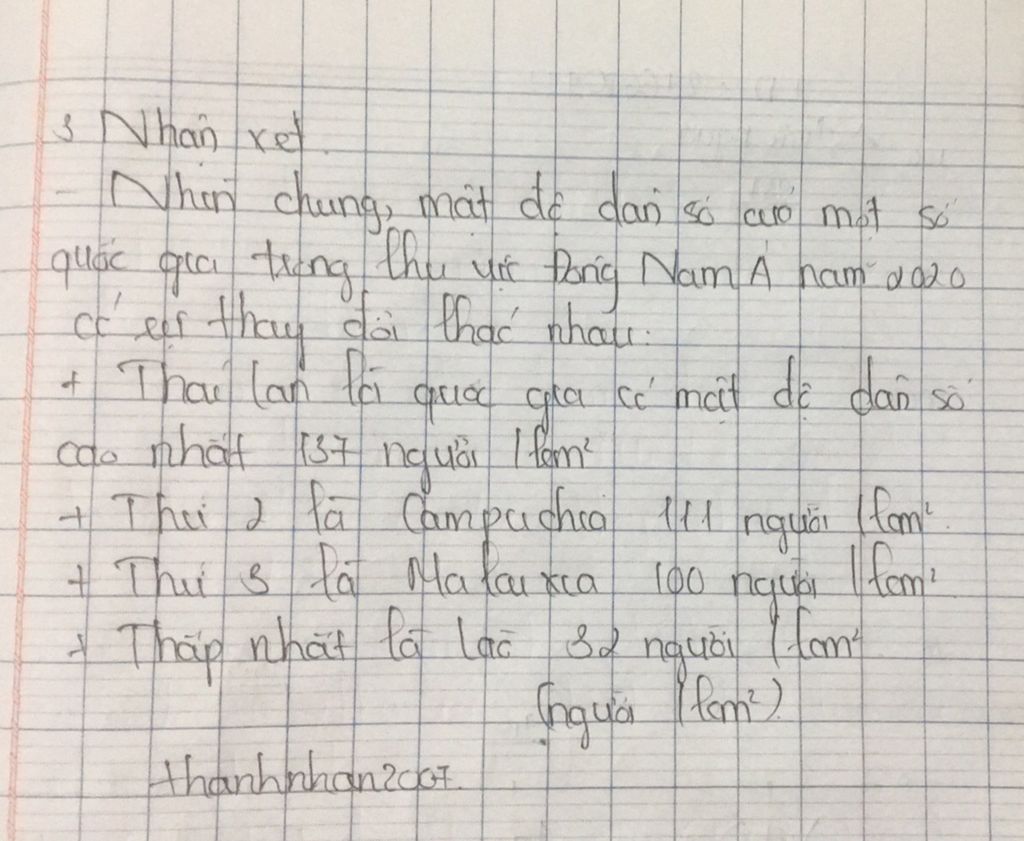 3 Nhận xét.
- Nhìn chung, mật độ dân số của một số
quốc gia trong khu vực Đông Nam Á năm 2020
có sự thay đổi khác nhau:
+ Thái lan là quốc gia có mật độ dân số
cao nhất 137 người / km²
+ Thứ 2 là Campuchia 111 người / km².
+ Thứ 3 là Malaixia 100 người / km²
+ Thấp nhất là Lào 32 người / km²
(người / km²)
thanhnhan2007.